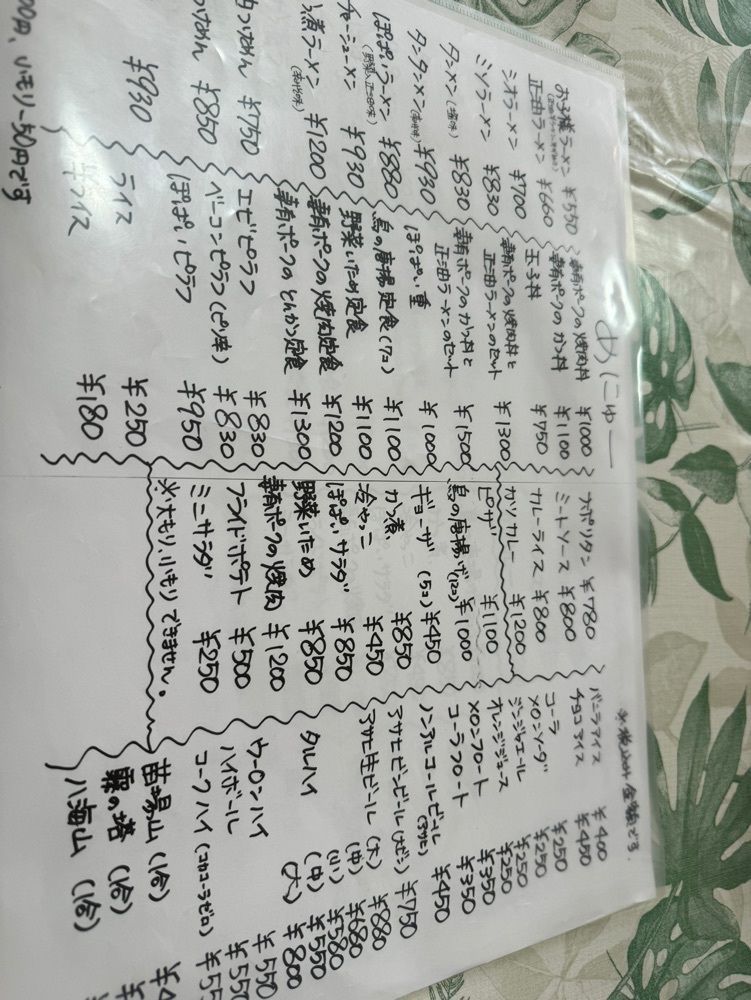 めにゅー
お子様ラーメン ¥550
正油ラーメン ¥660
シオラーメン ¥700
ミソラーメン ¥830
タンメン(塩味) ¥830
タンタンメン ¥930
ぽぱいラーメン ¥880
チャーシューメン ¥930
煮ラーメン ¥1200
つけめん ¥750
つけめん ¥850
¥930
小モリ-50円です
妻有ポークの焼肉丼 ¥1000
妻有ポークのかつ丼 ¥1100
玉子丼 ¥750
妻有ポークの焼肉丼と
正油ラーメンのセット ¥1300
妻有ポークのかつ丼と
正油ラーメンのセット ¥1500
ぽぱい重 ¥1000
鳥の唐揚定食(7コ) ¥1100
野菜いため定食 ¥1100
妻有ポークの焼肉定食 ¥1200
妻有ポークのとんかつ定食 ¥1300
エビピラフ ¥830
ベーコンピラフ(ピリ辛) ¥830
ぽぱいピラフ ¥950
ライス ¥250
半ライス ¥180
ナポリタン ¥780
ミートソース ¥800
カレーライス ¥800
カツカレー ¥1200
ピザ ¥1100
鳥の唐揚げ(12コ) ¥1000
ギョーザ(5コ) ¥450
かつ煮 ¥850
冷やっこ ¥450
ぽぱいサラダ ¥850
野菜いため ¥850
妻有ポークの焼肉 ¥1200
フライドポテト ¥500
ミニサラダ ¥250
※大もり、小もりできません。
バニラアイス ¥400
チョコアイス ¥400
コーラ ¥250
メロンソーダ ¥250
ジンジャエール ¥250
オレンジジュース ¥350
メロンフロート ¥350
コーラフロート
ノンアルコールビール ¥450
アサヒビンビール(大ビン) ¥750
アサヒ生ビール(大) ¥880
(中) ¥680
(小) ¥580
タルハイ (中) ¥550
(大) ¥800
ウーロンハイ ¥550
ハイボール ¥550
コークハイ(コカコーラゼロ)
苗場山(1合)
霧の塔(1合)
八海山(1合)